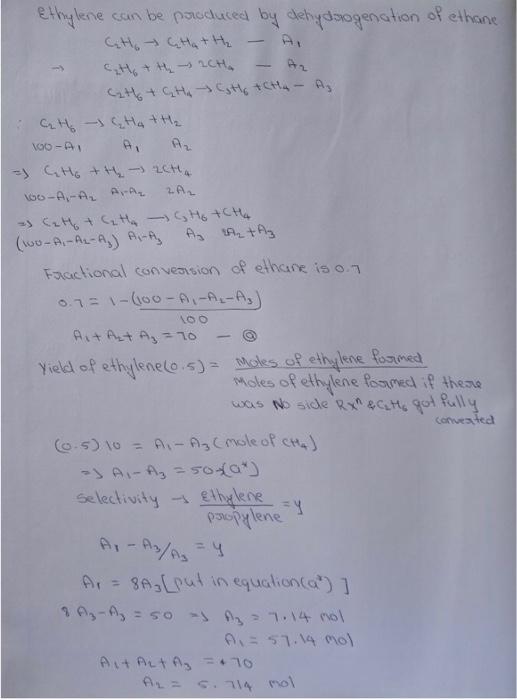 Ethylene can be produced by dehydrogenation of ethane
C2H6 → C2H4 + H2 — A1
→ C2H6 + H2 → 2CH4 — A2
C2H6 + C2H4 → C3H6 + CH4 — A3
: C2H6 → C2H4 + H2
100-A1 A1 A2
=> C2H6 + H2 → 2CH4
100-A1-A2 A1-A2 2A2
=> C2H6 + C2H4 → C3H6 + CH4
(100-A1-A2-A3) A1-A3 A3 2A2+A3
Fractional conversion of ethane is 0.7
0.7 = 1-(100-A1-A2-A3)
100
A1+A2+A3 = 70 — @
Yield of ethylene(0.5) = Moles of ethylene formed
Moles of ethylene formed if there
was No side Rxn & C2H6 got fully
converted
(0.5)10 = A1-A3 (mole of CH4)
=> A1-A3 = 50 (a*)
Selectivity → ethylene = y
propylene
A1-A3/A3 = y
A1 = 8A3 [put in equation(a*)]
8A3-A3 = 50 => A3 = 7.14 mol
A1 = 57.14 mol
A1+A2+A3 = 70
A2 = 5.714 mol